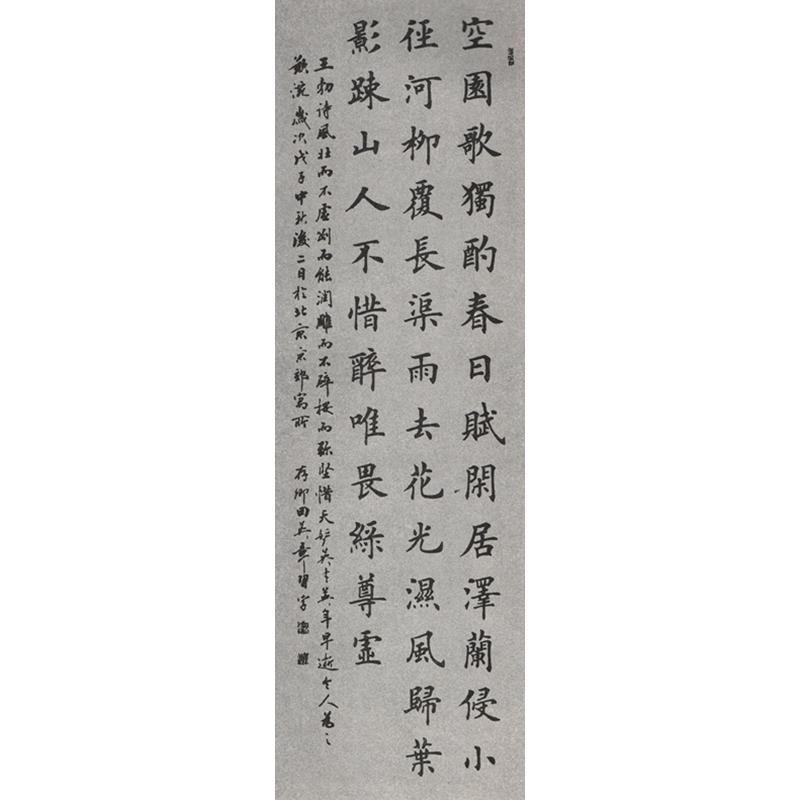 空園歌獨酌春日賦閑居澤蘭侵小
徑河柳覆長渠雨去花光濕風歸葉
影疎山人不惜醉唯畏綠尊虛
王勃诗風壮而不虚剛而能润雕而不碎按而弥坚惜天妒英才英年早逝令人為之
歎惋歲次戊子中秋後二日於北京京郊寓所 存卿田英章習字